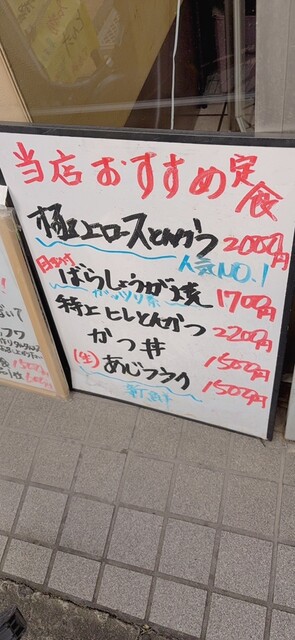 当店おすすめ定食
極上ロースとんかつ 2000円
人気NO.1
ばらしょうが焼 1700円
ガッツリ系
特上ヒレとんかつ 2200円
かつ丼 1500円
(生)あじフライ 1500円